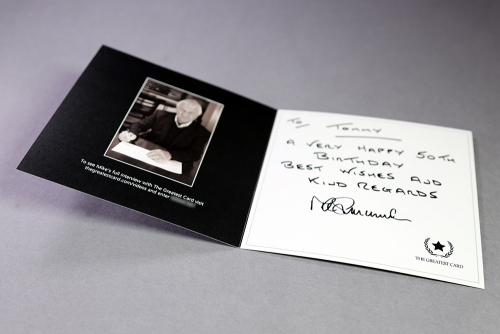 To see Mike's full interview with The Greatest Card visit
thegreatestcard.com/videos and enter
TO TOMMY
A VERY HAPPY 50TH
BIRTHDAY
BEST WISHES AND
KIND REGARDS
THE GREATEST CARD